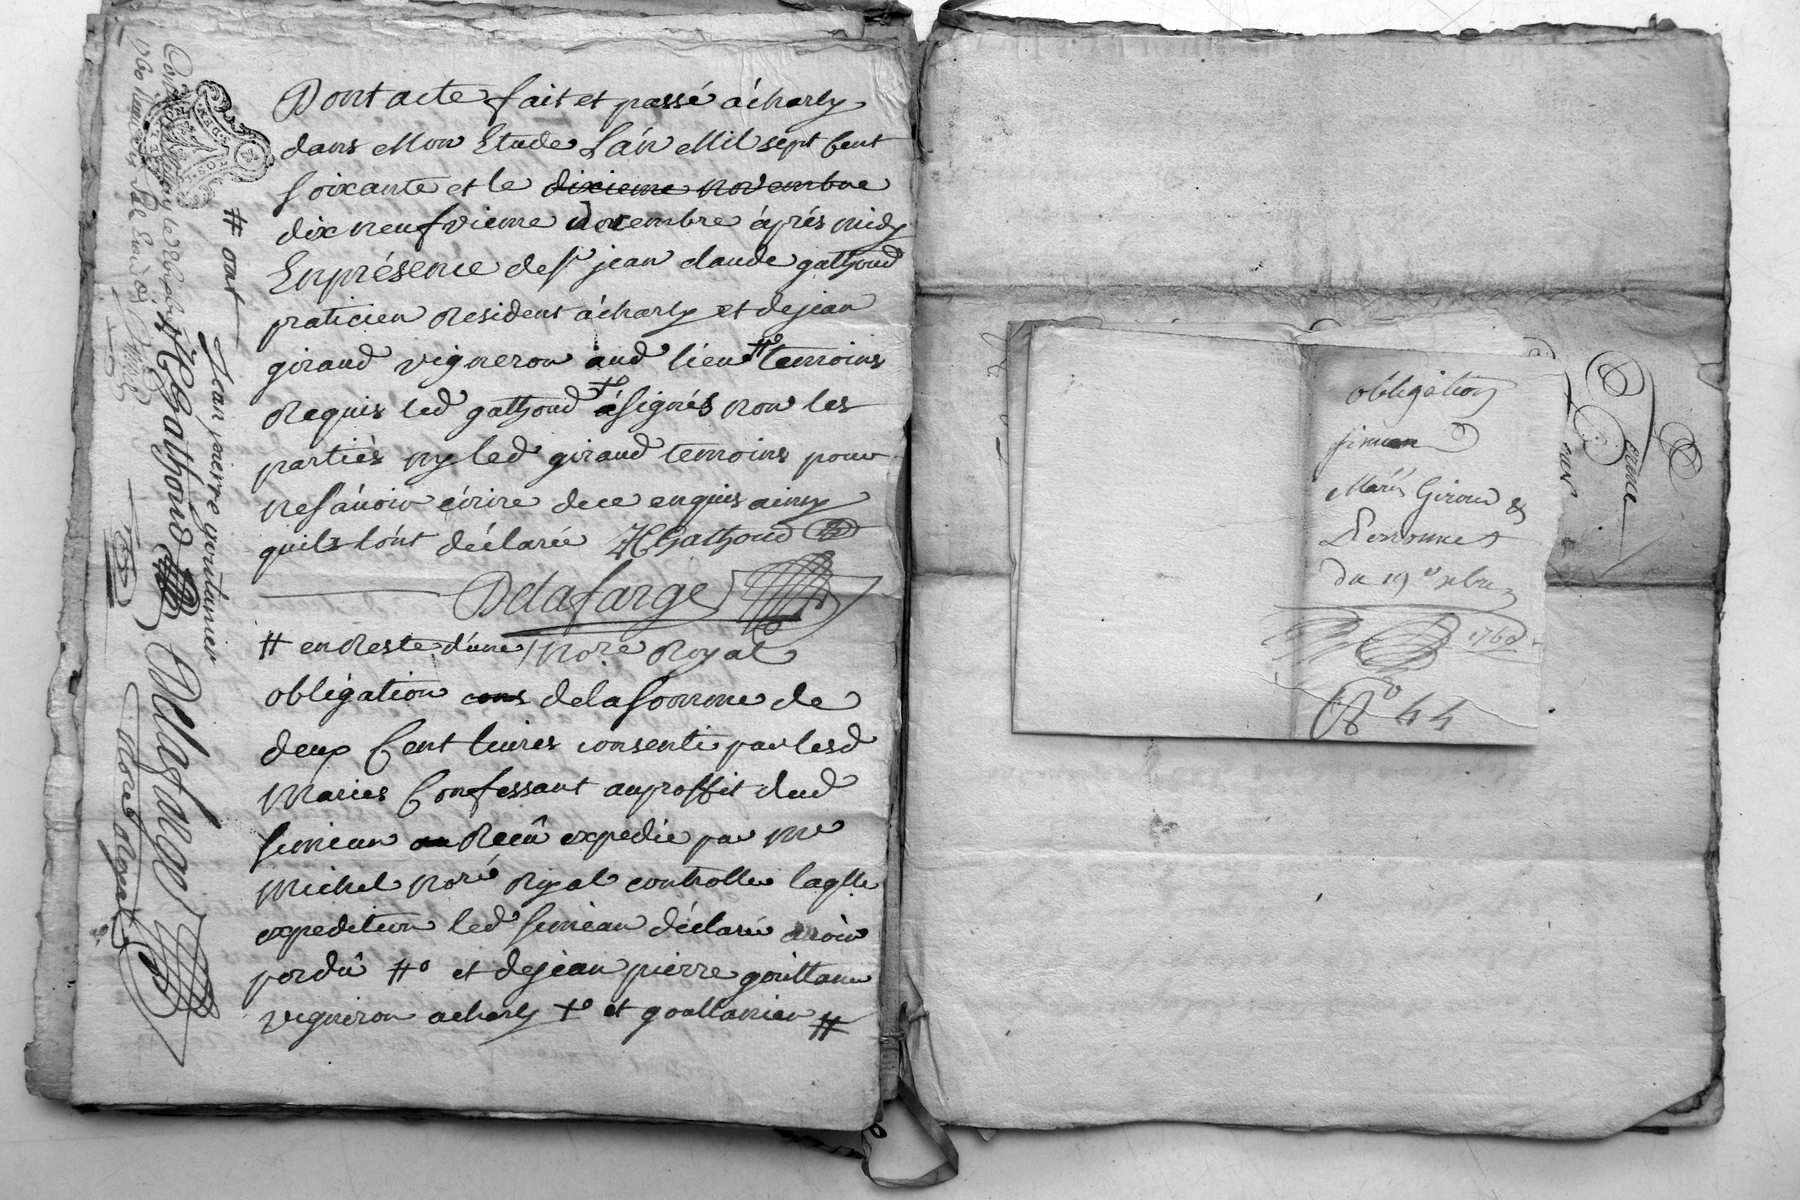 Dont acte fait et passé à charly
dans Mon Etude L'an Mil sept Cent
soixante et le dixieme novembre
dix neufvieme novembre aprés midy
En présence de sr jean claude gathoud
praticien Resident à charly et de jean
giraud vigneron aud lieu #o temoins
Requis led gathoud +o à signés non les
partiés ny led giraud temoins pour
ne sávoir écrire de ce enquis ainsy
quils l'ónt déclarée JCGathoud
Delafarge
Nore Royal
# en Reste d'une
obligation de la somme de
deux Cent livres consenti par lesd
Maries Confessant au proffit dud
simean Recû expedie par Me
Michel Noré Royal controllée laqlle
expedition led simean déclaré avoir
perdû #o et de jean pierre gouttanier
vigneron a charly +o et gouttanier #
# ont
Jean pierre gouttanier
JCGathoud
Delafarge
obligation
simean
Mariés Giroud &
du 19e 9bre
1760
No 44